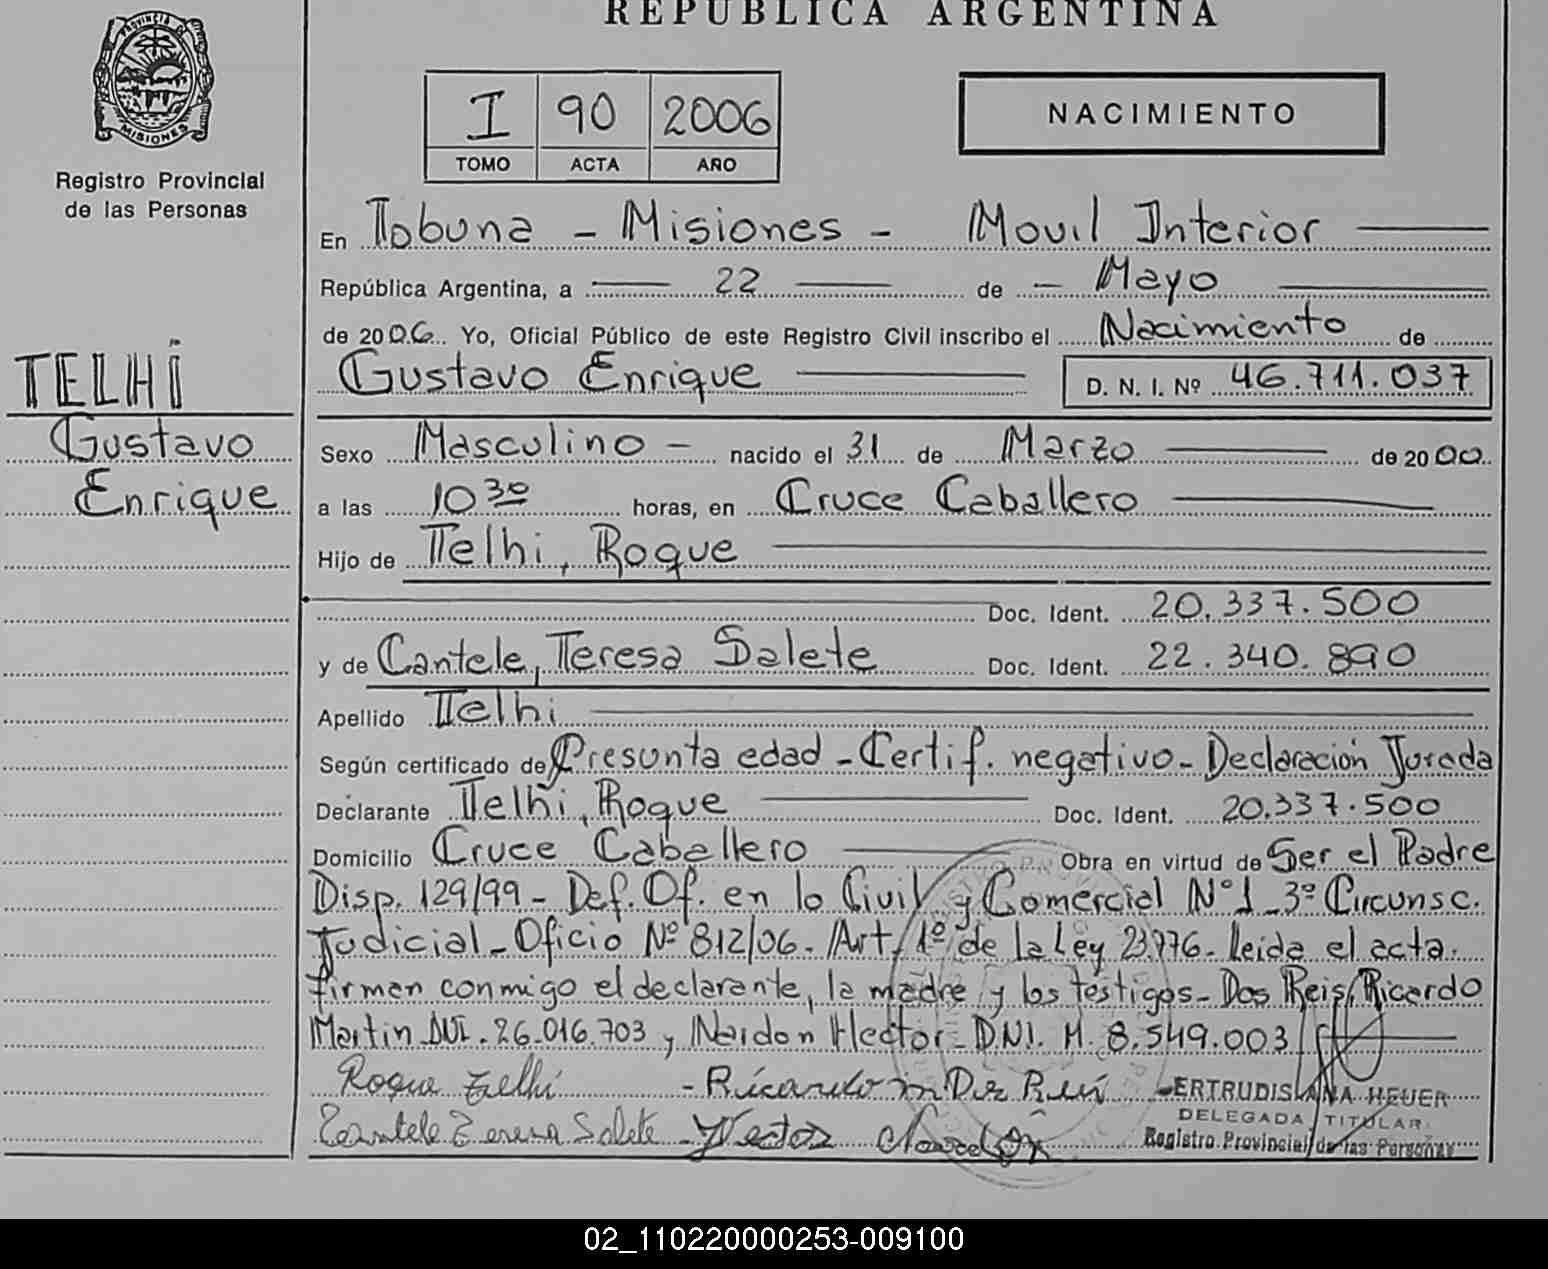 REPUBLICA ARGENTINA
PROVINCIA DE
MISIONES
Registro Provincial
de las Personas
I 90 2006
TOMO ACTA AÑO
NACIMIENTO
En Tobuna - Misiones - Movil Interior
República Argentina, a 22 de - Mayo
de 2006. Yo, Oficial Público de este Registro Civil inscribo el Nacimiento de
Gustavo Enrique D. N. I. Nº 46.711.037
TELHI
Gustavo
Enrique
Sexo Masculino - nacido el 31 de Marzo de 2000
a las 10 30 horas, en Cruce Caballero
Hijo de Telhi, Roque
Doc. Ident. 20.337.500
y de Cantele, Teresa Salete Doc. Ident. 22.340.890
Apellido Telhi
Según certificado de Presunta edad - Certif. negativo - Declaración Jurada
Declarante Telhi, Roque Doc. Ident. 20.337.500
Domicilio Cruce Caballero Obra en virtud de Ser el Padre
Disp. 129/99 - Def. Of. en lo Civil y Comercial Nº 1 - 3º Circunsc.
Judicial - Oficio Nº 812/06. Art. 1º de la Ley 23776. leida el acta.
firman conmigo el declarante, la madre y los testigos - Dos Reis, Ricardo
Martin DNI. 26.016.703 y Nardon Hector - DNI. M. 8.549.003
Roque Telhi - Ricardo m Dos Reis
ERTRUDIS ANA HEUER
DELEGADA TITULAR
Cantele Teresa Salete - Hector Nardon
Registro Provincial de las Personas
02_110220000253-009100